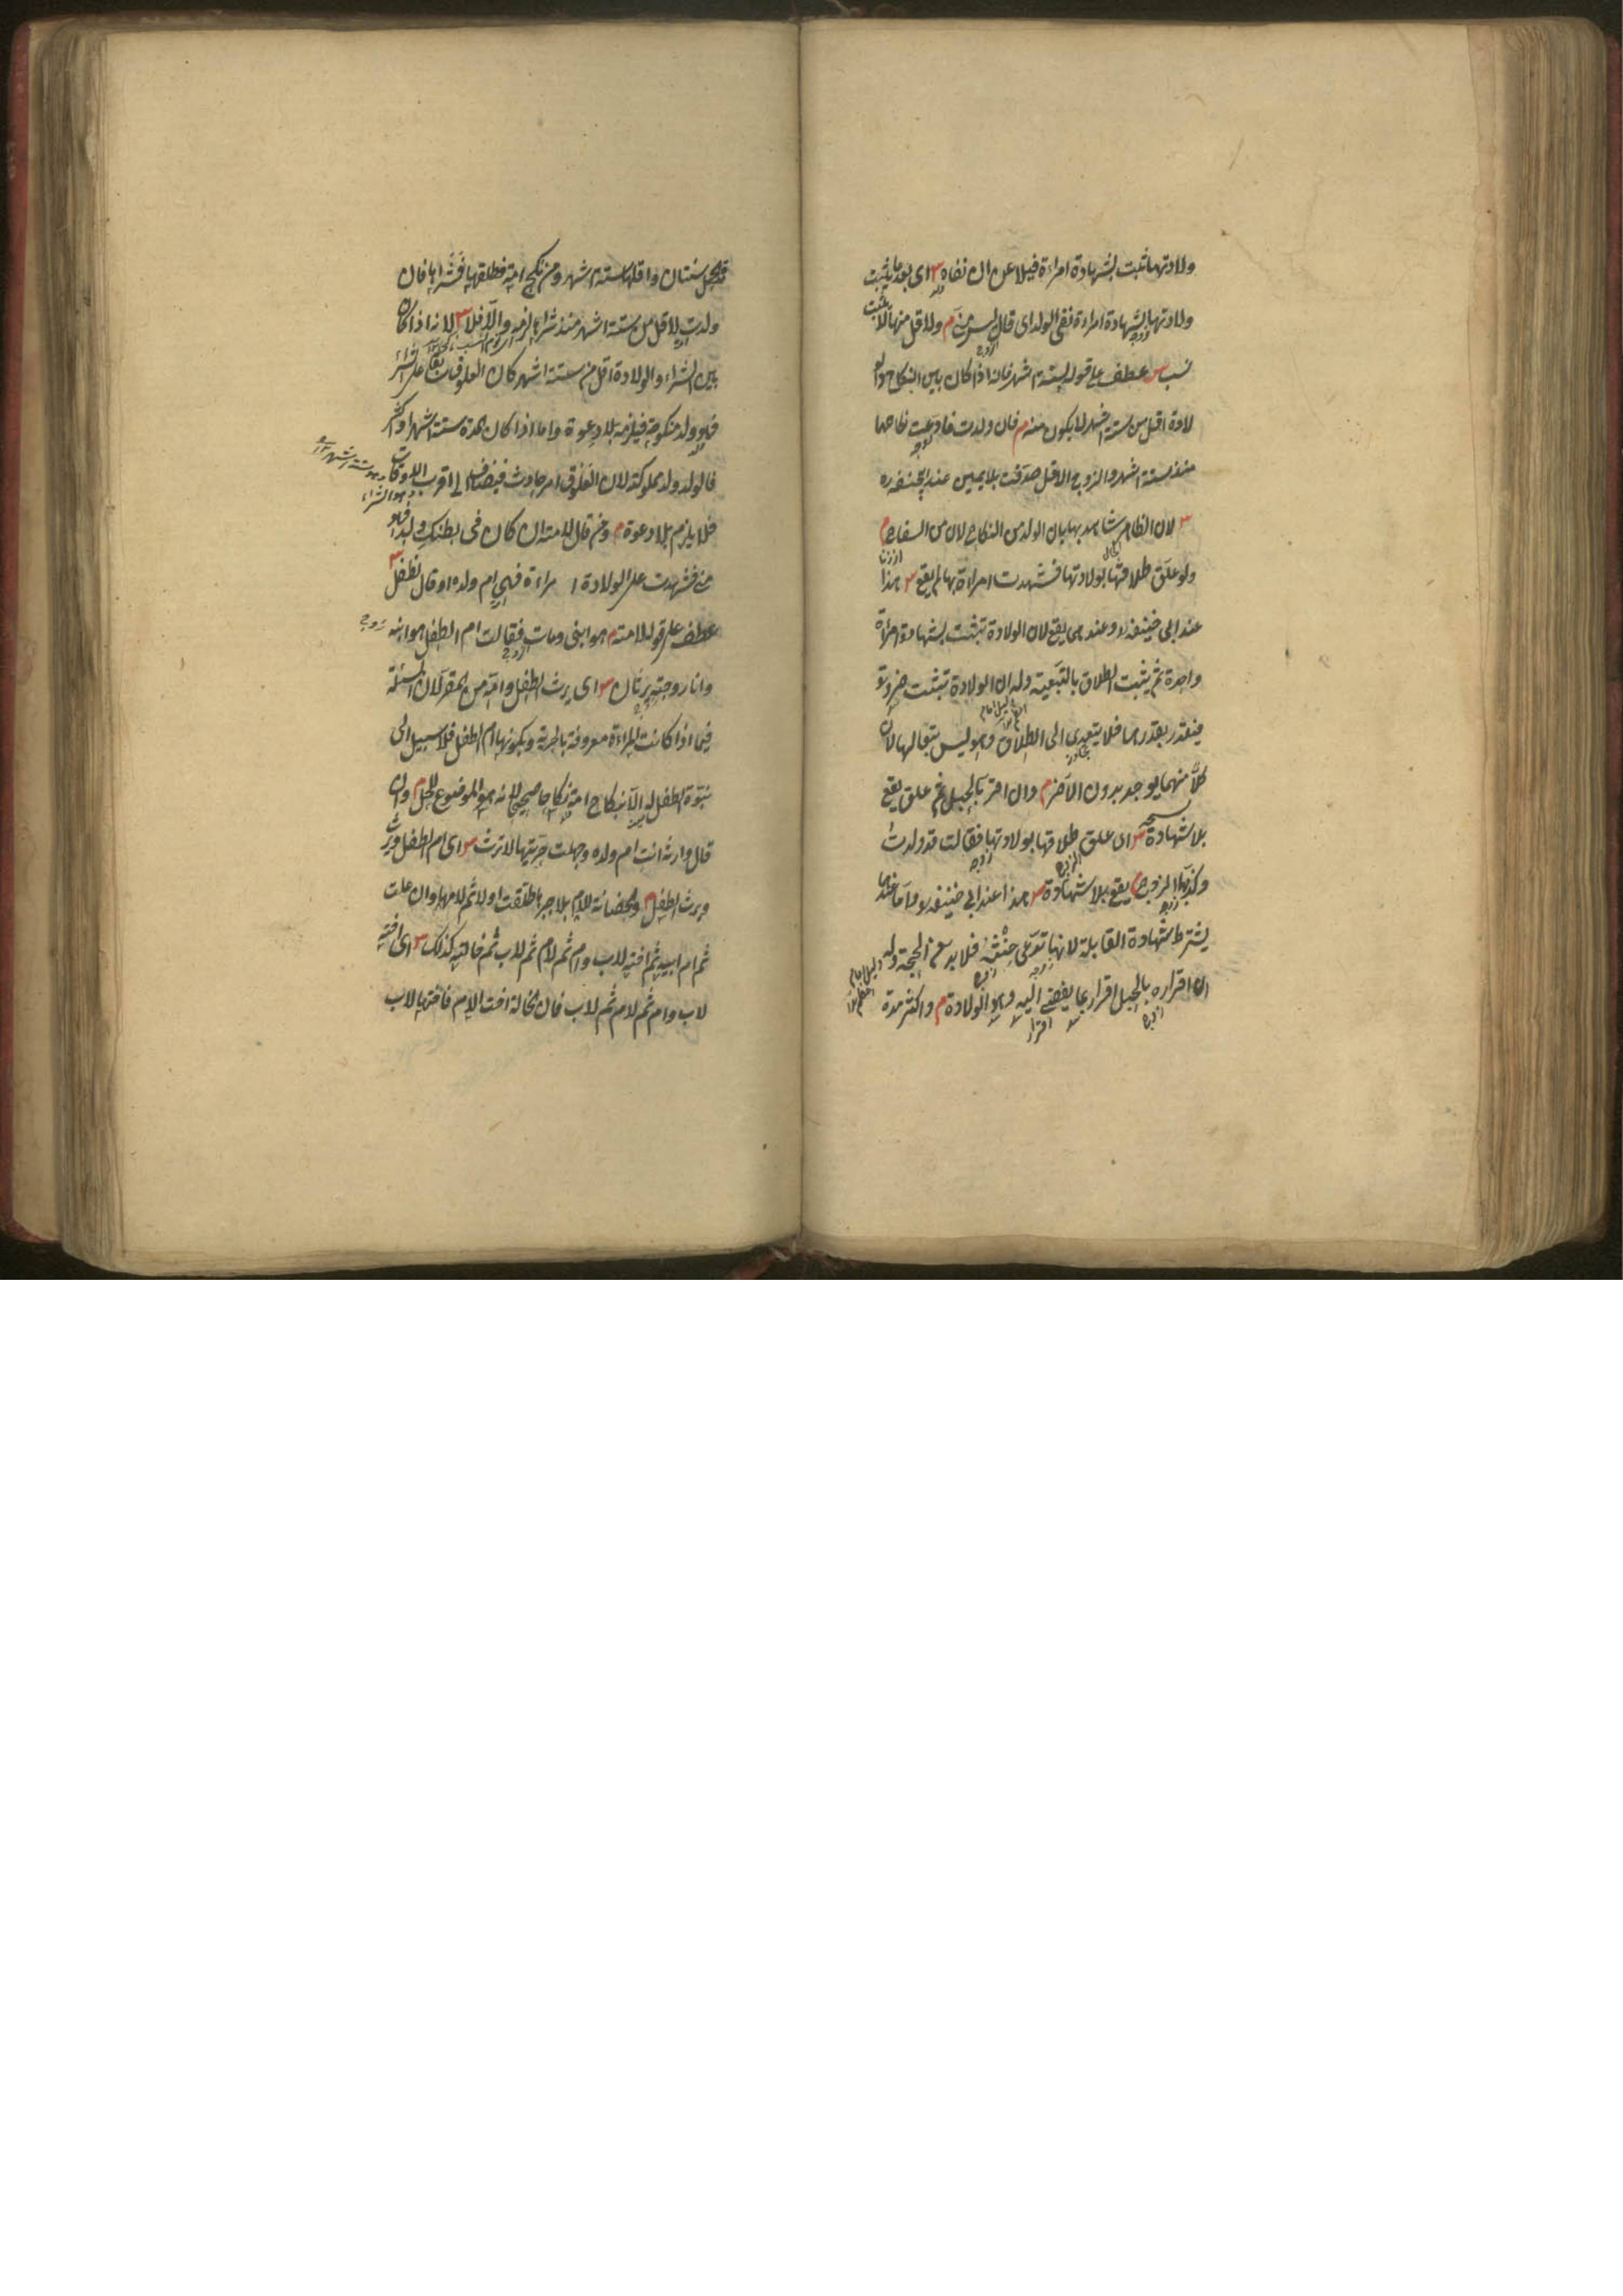 ولادتهما تثبت بشهادة امراءة فيلاعن ان نفاه س اى بعد ما يثبت
ولادتها بشهادة امراءة نفى الولد اى قال ليس منى م ولاقل منها لا يثبت
نسب س عطف على قوله لستة اشهر فانه اذا كان بين النكاح والو
لادة اقل من ستة اشهر لا يكون منه م فان ولدت فادعت نكاحها
منذ ستة اشهر والزوج الاقل صدقت بلا يمين عند ابى حنيفة ره
س لان الظاهر شاهد بها بان الولد من النكاح لان من السفاح م
ولو علق طلاقها بولادتها فشهدت امراءة بها لم يقع س هذا
عند ابى حنيفة ره وعندهما يقع لان الولادة تثبت بشهادة امرأة
واحدة ثم يثبت الطلاق بالتبعية وله ان الولادة تثبت ضرورة
فيتقدر بقدرها فلا يتعدى الى الطلاق وهو ليس بتبع لها لان
كلا منهما يوجد بدون الآخر م وان اقر بالحبل ثم علق يقع
بلا شهادة س اى علق طلاقها بولادتها فقالت قد ولدت
وكذبها الزوج يقع بلا شهادة س هذا عند ابى حنيفة ره واما عندهما
يشترط شهادة القابلة لانها تدعى حنثه فلا بد من الحجة وله
ان اقراره بالحبل اقرار بما يفضى اليه وهو الولادة م واكثر مدة
الحمل سنتان واقلها ستة اشهر ومن نكح امة فطلقها فشراها فان
ولدت لاقل من ستة اشهر منذ شراها لزمه والا فلا س لانه اذا كان
بين الشراء والولادة اقل من ستة اشهر كان العلوق سابقا على الشراء
فهو ولد منكوحة فيلزمه بلا دعوة واما اذا كان المدة ستة اشهر او اكثر
فالولد ولد مملوكة لان العلوق امر حادث فيضاف الى اقرب الاوقات
وهو الشراء
فلا يلزم بلا دعوة م ومن قال لامته ان كان فى بطنك ولد فهو
منى فشهدت على الولادة امراءة فهى ام ولده او قال لطفل س
عطف على قوله لامته م هو ابنى ومات فقالت ام الطفل هو ابنه
وانا زوجته يرثان س اى يرث الطفل وامه من المقر لان المسئلة
فيما اذا كانت المراءة معروفة بالحرية وبكونها ام الطفل فلا سبيل الى
بنوة الطفل له الا بنكاح امه نكاحا صحيحا لانه هو الموضوع للحل م وان
قال وارثه انت ام ولده وجهلت حريتها لا ترث س اى ام الطفل ويرث
ويرث الطفل م والحضانة للام بلا جبرها طلقت اولا ثم لامها وان علت
ثم ام ابيه ثم اخته لاب وام ثم لام ثم لاب ثم خالته كذلك س اى اخته
لاب وام ثم لام ثم لاب فان الخالة اخت الام فاختها لاب